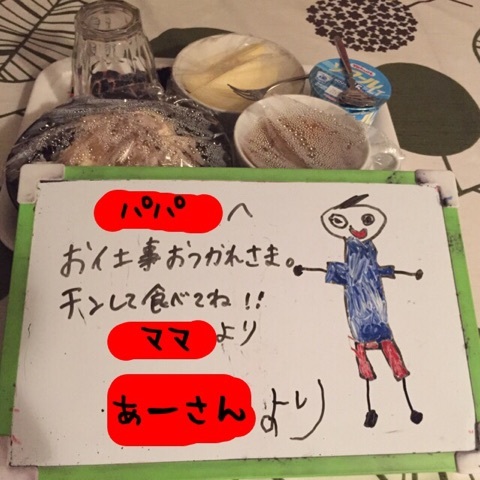 パパへ
お仕事おつかれさま。
チンして食べてね!!
ママより
あーさんより